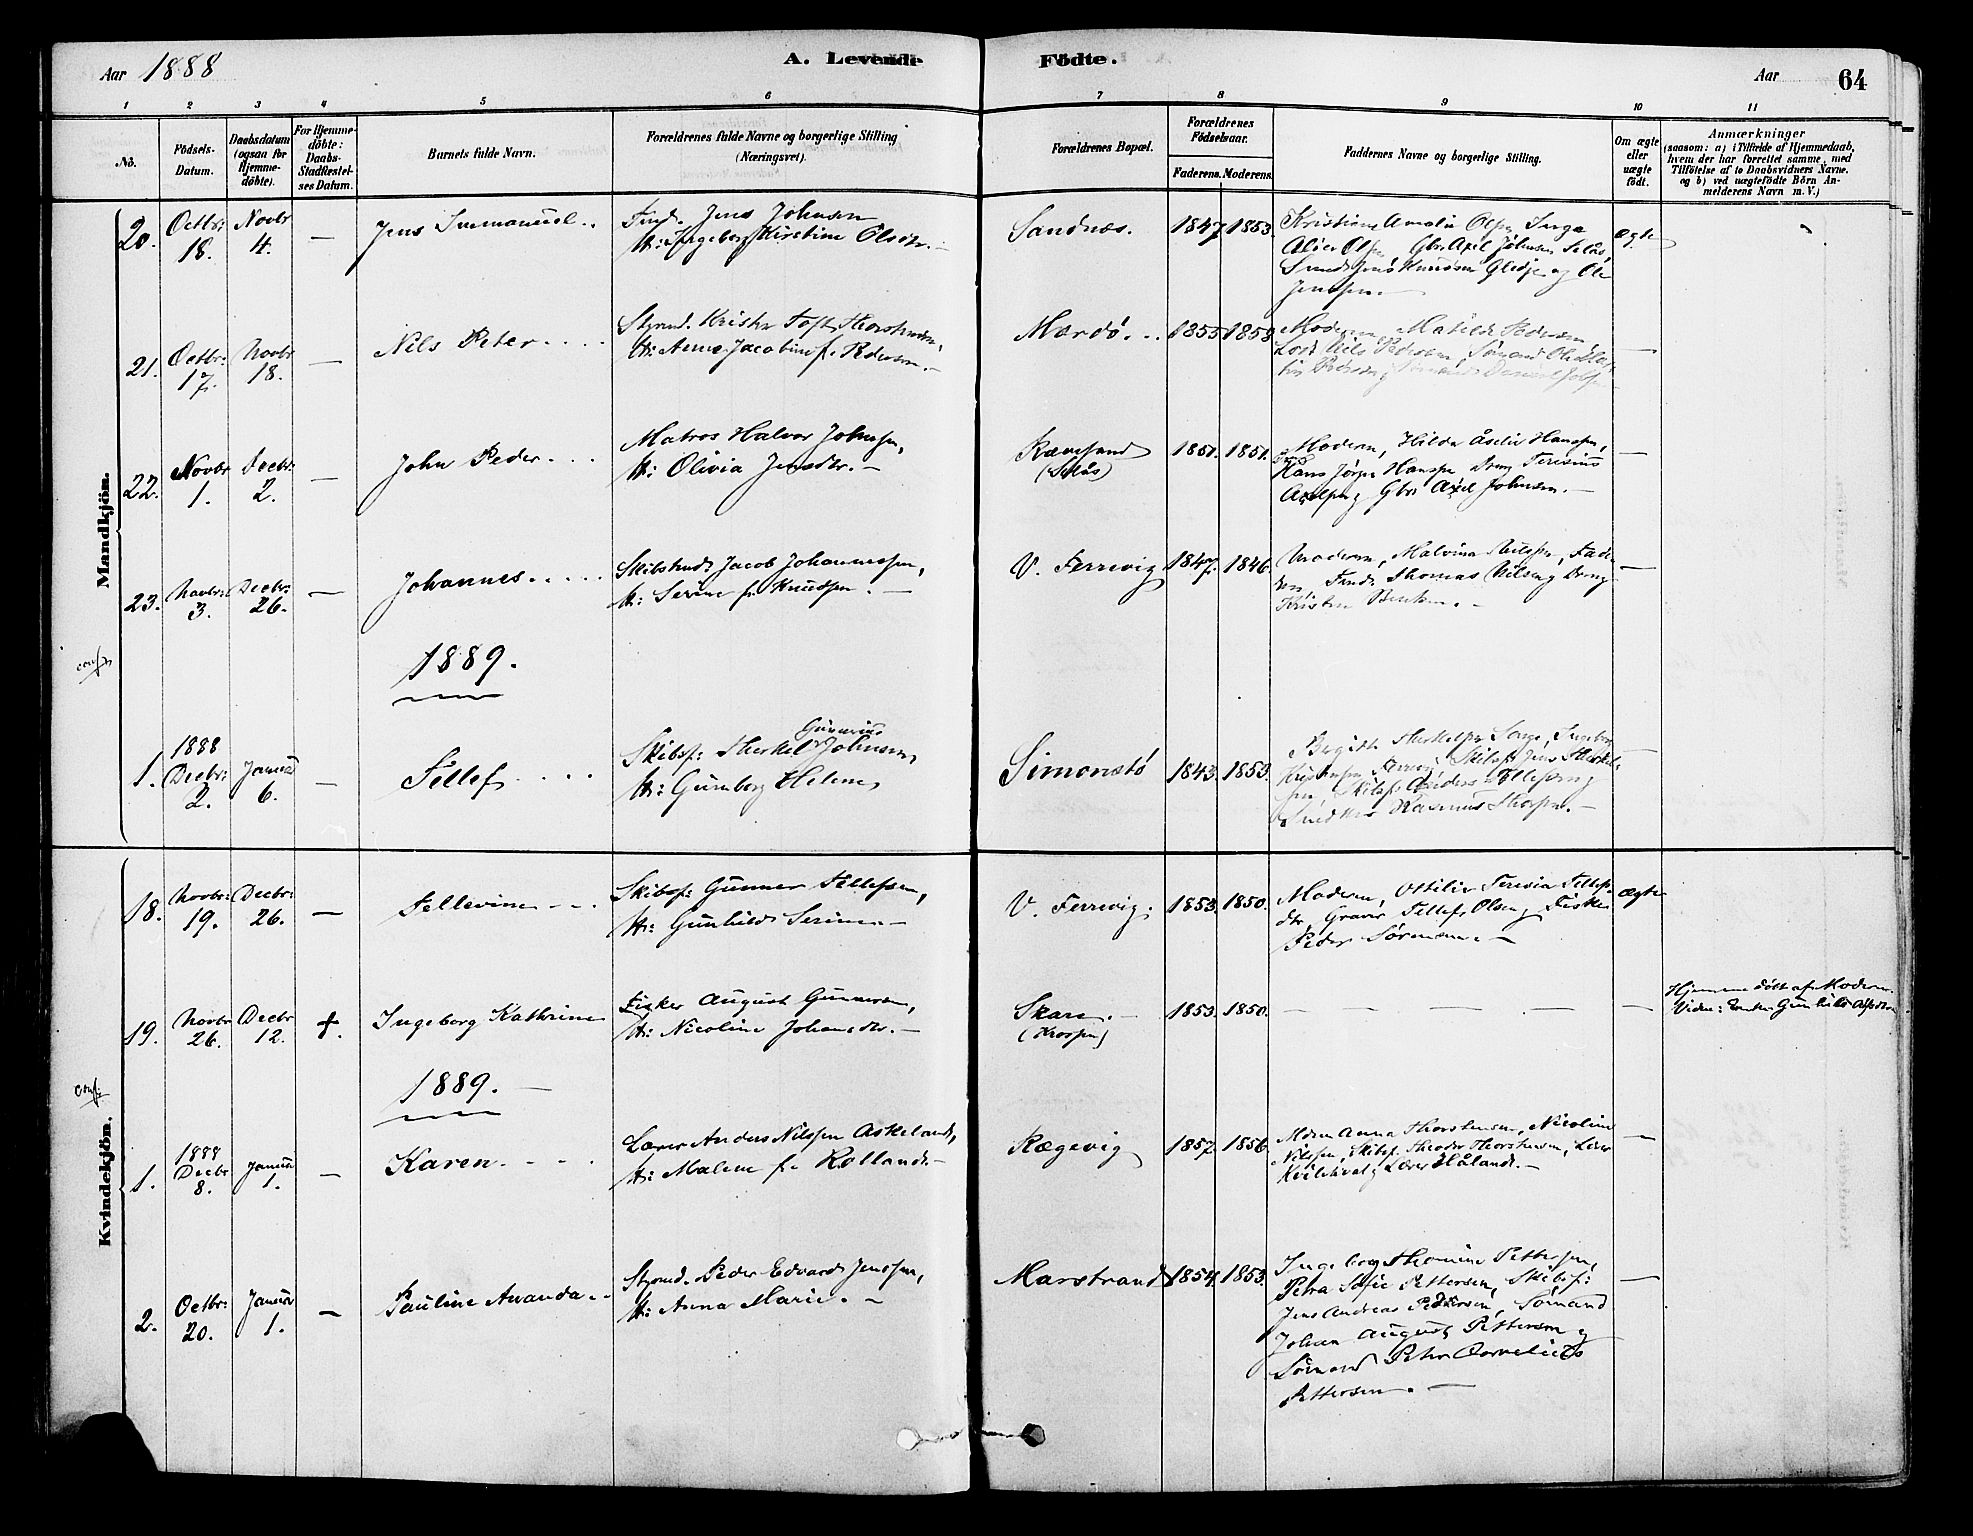 Aar 1888
A. Levende Födte.
Aar
64
1 2 3 4 5 6 7 8 9 10 11
No.
Födsels-Datum.
Daabsdatum (ogsaa for Hjemme-döbte).
For Hjemme-döbte: Daabs-Stadfæstel-ses Datum.
Barnets fulde Navn.
Forældrenes fulde Navne og borgerlige Stilling (Næringsvei).
Forældrenes Bopæl.
Forældrenes Födselsaar.
Faderens. Moderens.
Faddernes Navne og borgerlige Stilling.
Om ægte eller uægte födt.
Anmærkninger
(saasom: a) i Tilfælde af Hjemmedaab,
hvem der har forrettet samme, med
Tilföielse af to Daabsvidners Navne.
og b) ved uægtefödte Börn An-
melderens Navn m. V.)
Mandkjön.
20. Octbr: 18. Novbr 4. — Jens Immanuel..
Jens Johnsen
H: Ingeborg Kirstine Olsdtr. —
Sandnæs. 1847. 1853.
Kristiane Amalie Olsen, Inga
Olsen Gbr. Axel Johnsen
Jens Knudsen Glidje og Ole
Jenssen. —
ægte
21. Octbr: 17. Novbr 18. — Nils Peter....
Styrmd. Krister Toft Thorstensen,
H: Anne Jacobine f. Pedersen. —
Mærdö... 1855 1859
Moderen, Matilde Pedersen,
Lods Nils Pedersen, Sömand
—
22. Novbr 1. Decbr: 2. — John Peder...
Matros Halvor Johnsen,
H: Olivia Jensdtr. —
Rævesand
1851. 1851.
Moderen, Hilda Åselie Hanssen,
Hans Jörgen Hanssen Dreng Terisius
Axelsen og Gbr Axel Johnsen. —
—
23. Novbr: 3. Decbr: 26. — Johannes.....
Skibstmd: Jacob Johannessen,
H: Serine f. Knudsen. —
V. Ferrevig 1847. 1846.
Moderen, Malvina Nilssen,
Thomas Nilsen og Dreng
—
conf.
1889.
1. 1888 Decbr: 2. Januar 6. — Tellef....
Gunerius
Skibsf: Therkel Johnsen,
H: Gunborg Helene
Simonstö 1843. 1853.
Birgitte Therkelsen Ingeborg
Kristensen Ferrevig, Skibsf: Jens Therkel-
sen, Skibsf: Anders Tellefsen og
Snedker Rasmus Thorsen. —
—
Kvindekjön.
18. Novbr: 19. Decbr: 26. — Tellevine...
Skibsf: Gunner Tellefsen,
H: Gunhild Serine —
V. Ferrevig. 1853. 1850.
Moderen, Ottilie Terisia Tellefs-
dtr, Graver Tellef Olsen og Fisker
Peder Sörensen. —
ægte
19. Novbr 26. Decbr 12. +. Ingeborg Kathrine
Fisker August Gunnersen,
H: Nicoline Johansdtr. —
Skare. — 1853. 1850.
— — — — —
Hjemme döbt af Moderen.
Vidne: Enke Gunhild
conf.
1889. —
1. 1888 Decbr 8. Januar 1. — Karen....
Lærer Anders Nilssen Askeland,
H: Malene f. Rolland. —
Rægevig 1857. 1856.
Moderen Anna Thorstensen, Nicoline
Nilssen, Skibsf. Theodor Thorstensen, Lærer
Kvilehval og Lærer Håland. —
—
2. Octbr: 20. Januar 1. — Pauline Amanda..
Styrmd. Peder Edvard Jenssen,
H: Anna Marie. —
Marstrand 1854. 1853.
Ingeborg Thomine Pettersen,
Petra Sofie Pettersen, Skibsf:
Jens Andreas Pedersen, Sömand
Johan August Pettersen og
Sömand Peter Cornelius
Pettersen. —
—